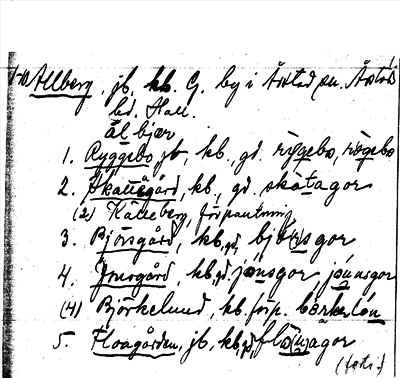 1-10 Allberg, jb, kb. G. by i Årstad sn. Årstads
hd. Hall.
ålbjær
1. Ryggebo, jb, kb., gd. rygebo, rögebo
2. Skattegård, kb, gd. skåtagor
(2) Källeberg, förpantning
3. Björsgård, kb, gd. björsgor
4. Jonsgård, kb, gd. jonsgor jounsgor
(4) Björkelund, kb. förp. börkelón
5. Floagården, jb, kb, gd. flounagor
(forts.)